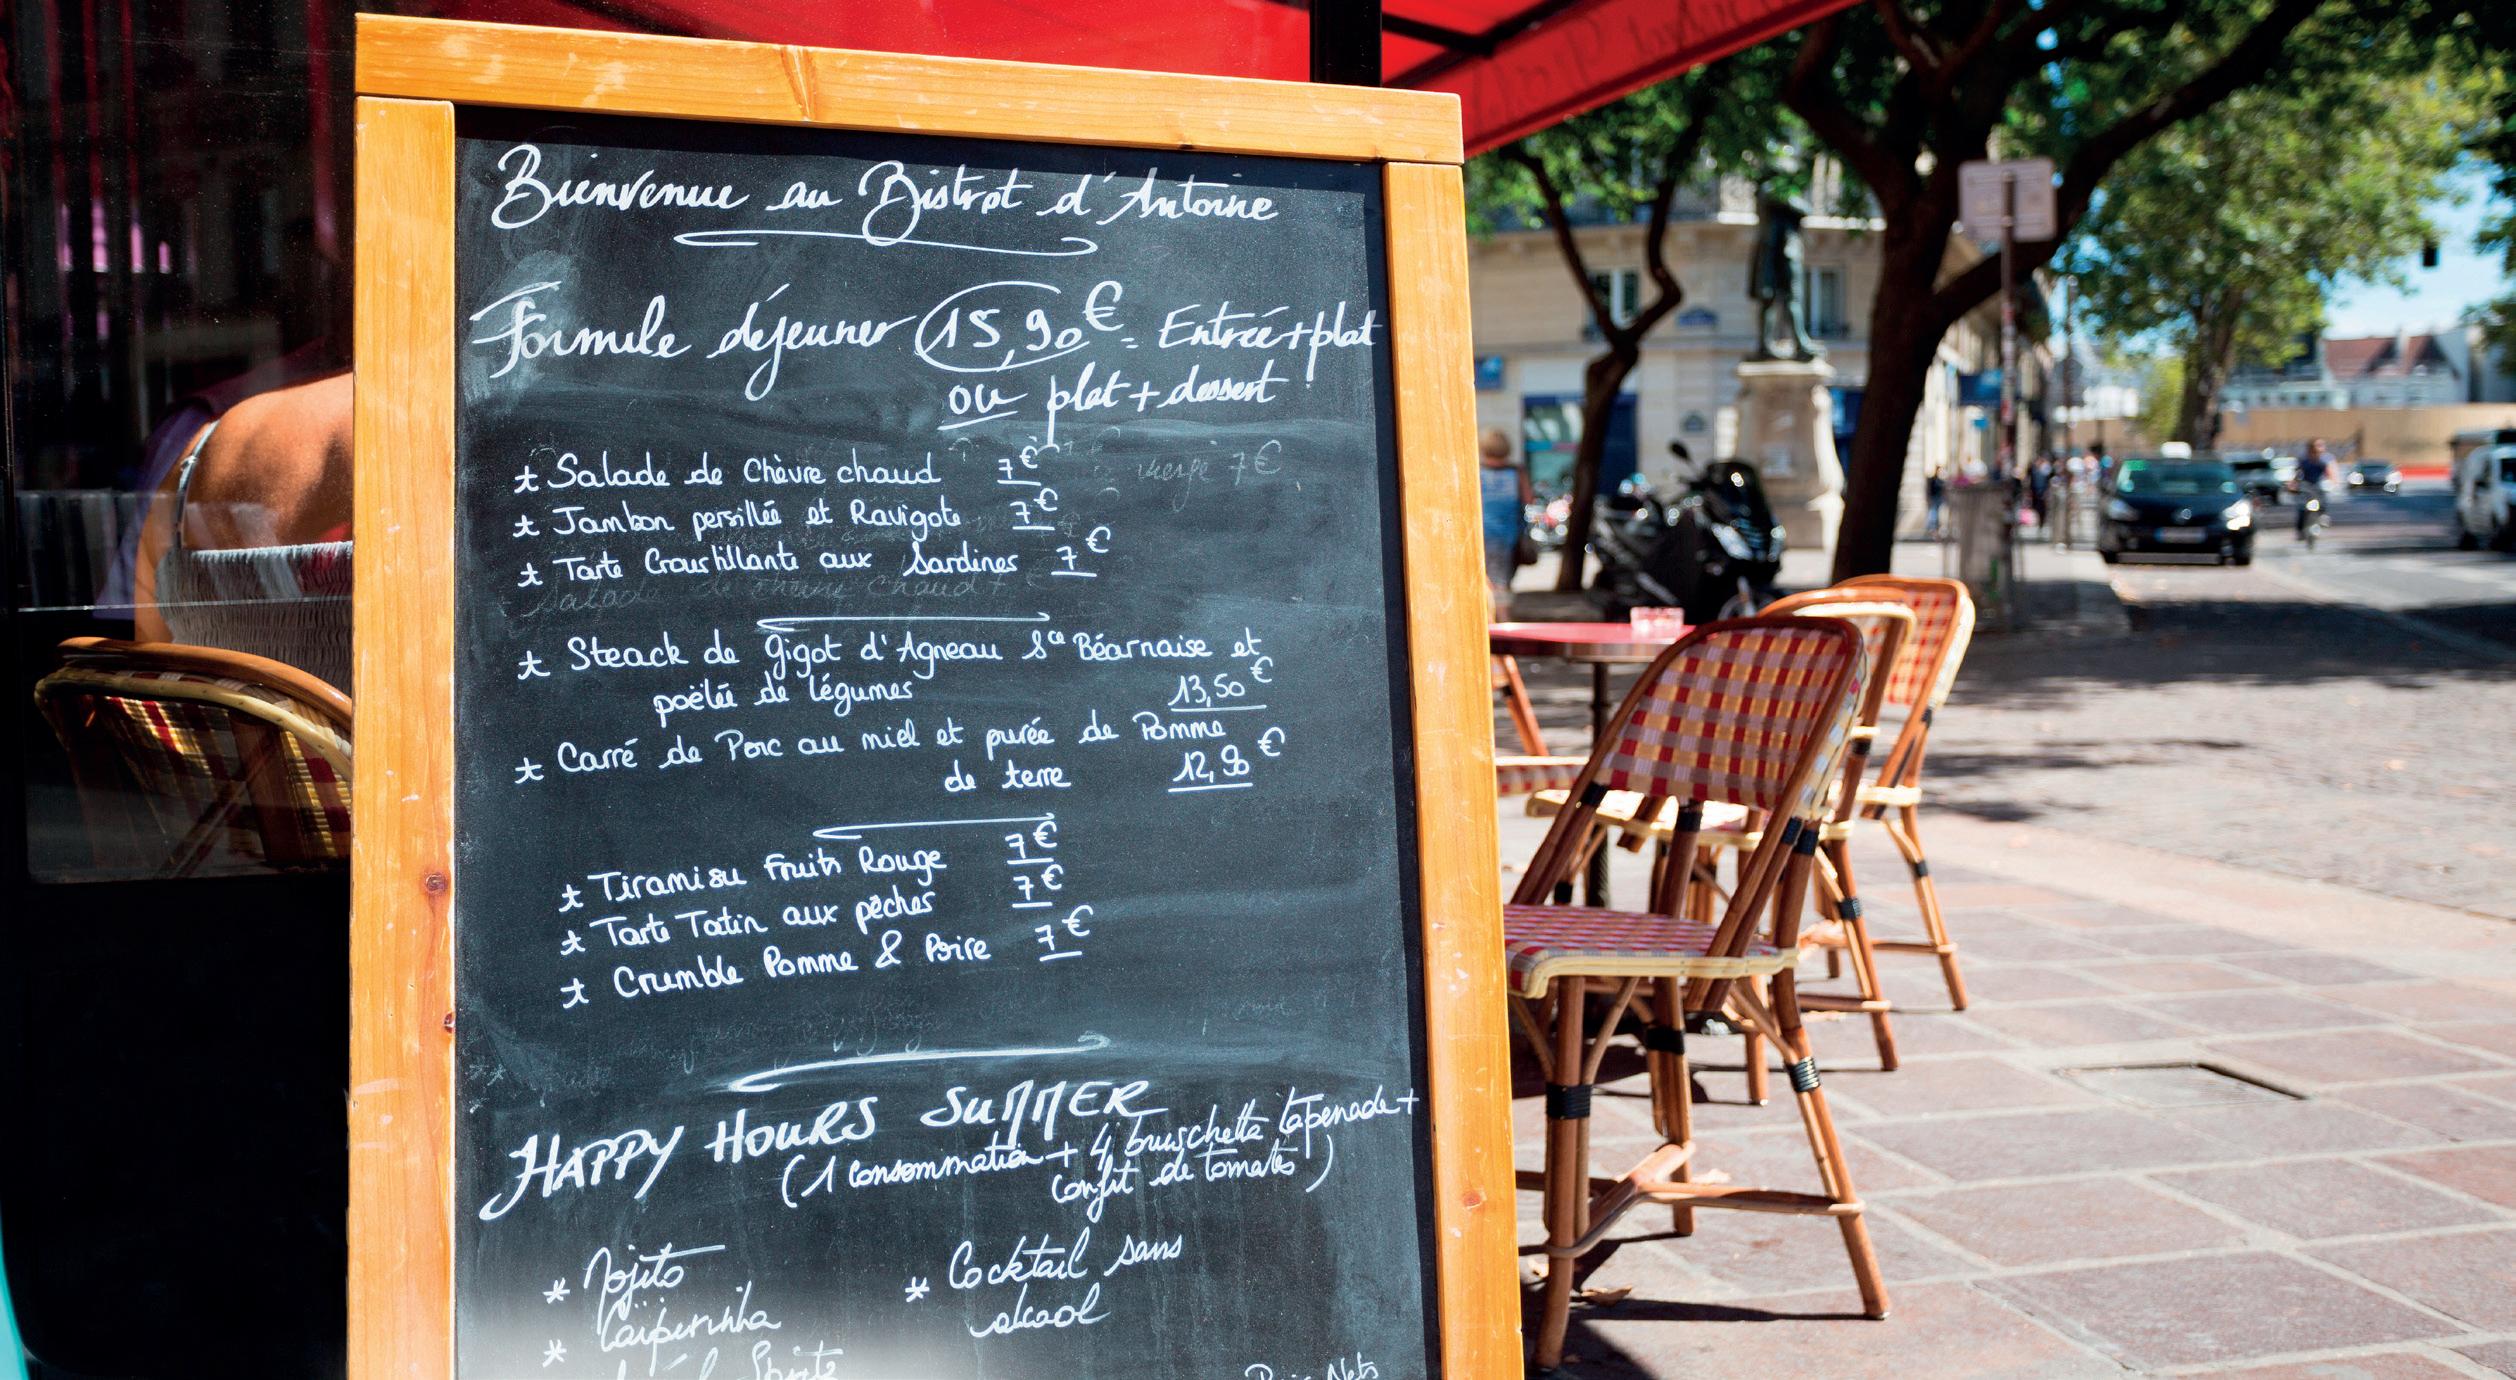 Bienvenue au Bistrot d'Antoine
Formule déjeuner 15,90€ = Entrée + plat
ou plat + dessert
* Salade de Chèvre chaud 7€
* Jambon persillée et Ravigote 7€
* Tarte Croustillante aux Sardines 7€
* Steack de Gigot d'Agneau Sce Béarnaise et
poëlée de légumes 13,50€
* Carré de Porc au miel et purée de Pomme
de terre 12,90€
* Tiramisu Fruits Rouge 7€
* Tarte Tatin aux pêches 7€
* Crumble Pomme & Poire 7€
HAPPY HOURS SUMMER
(1 consommation + 4 bruschetta tapenade +
confit de tomates)
* Mojito
* Caïpirinha
Spritz
* Cocktail sans
alcool
Prix Nets